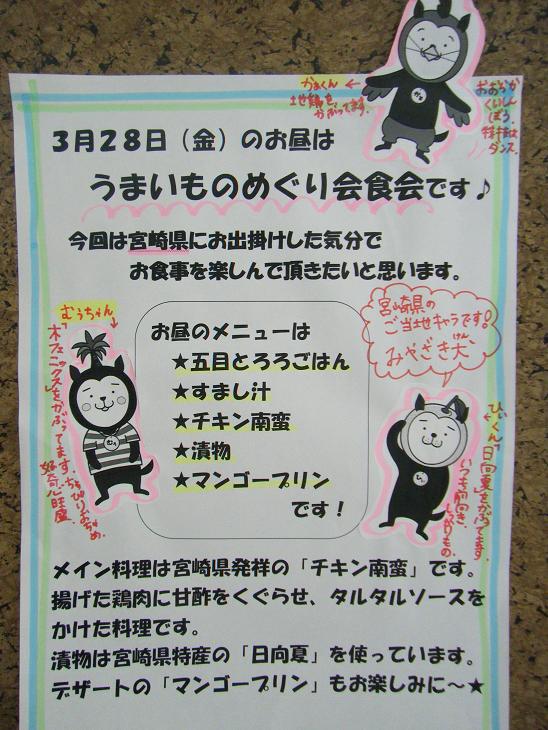 かぁくん ←
地鶏を
かぶってます。
おおらか
くいしん
ぼう。
特技は
ダンス。
3月28日（金）のお昼は
うまいものめぐり会食会です♪
今回は宮崎県にお出掛けした気分で
お食事を楽しんで頂きたいと思います。
むぅちゃん
木フェニックスをかぶってます。
ちょっぴりおちゃめ。
好奇心旺盛
お昼のメニューは
★五目とろろごはん
★すまし汁
★チキン南蛮
★漬物
★マンゴープリン
です！
宮崎県の
ご当地キャラです！
みやざき犬
けん
ひぃくん
日向夏をかぶってます。
いつも前向き、
しっかりもの
メイン料理は宮崎県発祥の「チキン南蛮」です。
揚げた鶏肉に甘酢をくぐらせ、タルタルソースを
かけた料理です。
漬物は宮崎県特産の「日向夏」を使っています。
デザートの「マンゴープリン」もお楽しみに～★